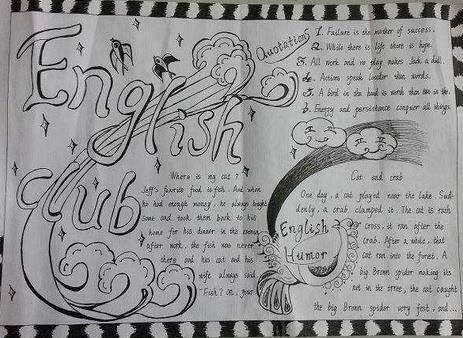 English
club
Quotations
1. Failure is the mother of success.
2. While there is life there is hope.
3. All work and no play makes Jack a dull.
4. Action speak louder than words.
5. A bird in the hand is worth than two in the
6. Energy and persistence conquer all things.
Where is my cat?
Jeff's favorite food is fish. And when
he had enough money, he always bought
some and took them back to his
home for his dinner in the evening
after work, the fish was never
there and his cat and his
wife always said,
"Fish? oh, your
English
Humor
Cat and crab
One day, a cat played near the lake. Sud-
denly, a crab clamped it. The cat is rash
cross, it ran after the
crab. After a while, that
cat ran into the forest. A
big Brown spider making its
net in the tree, the cat caught
the big Brown spider very fest, and...